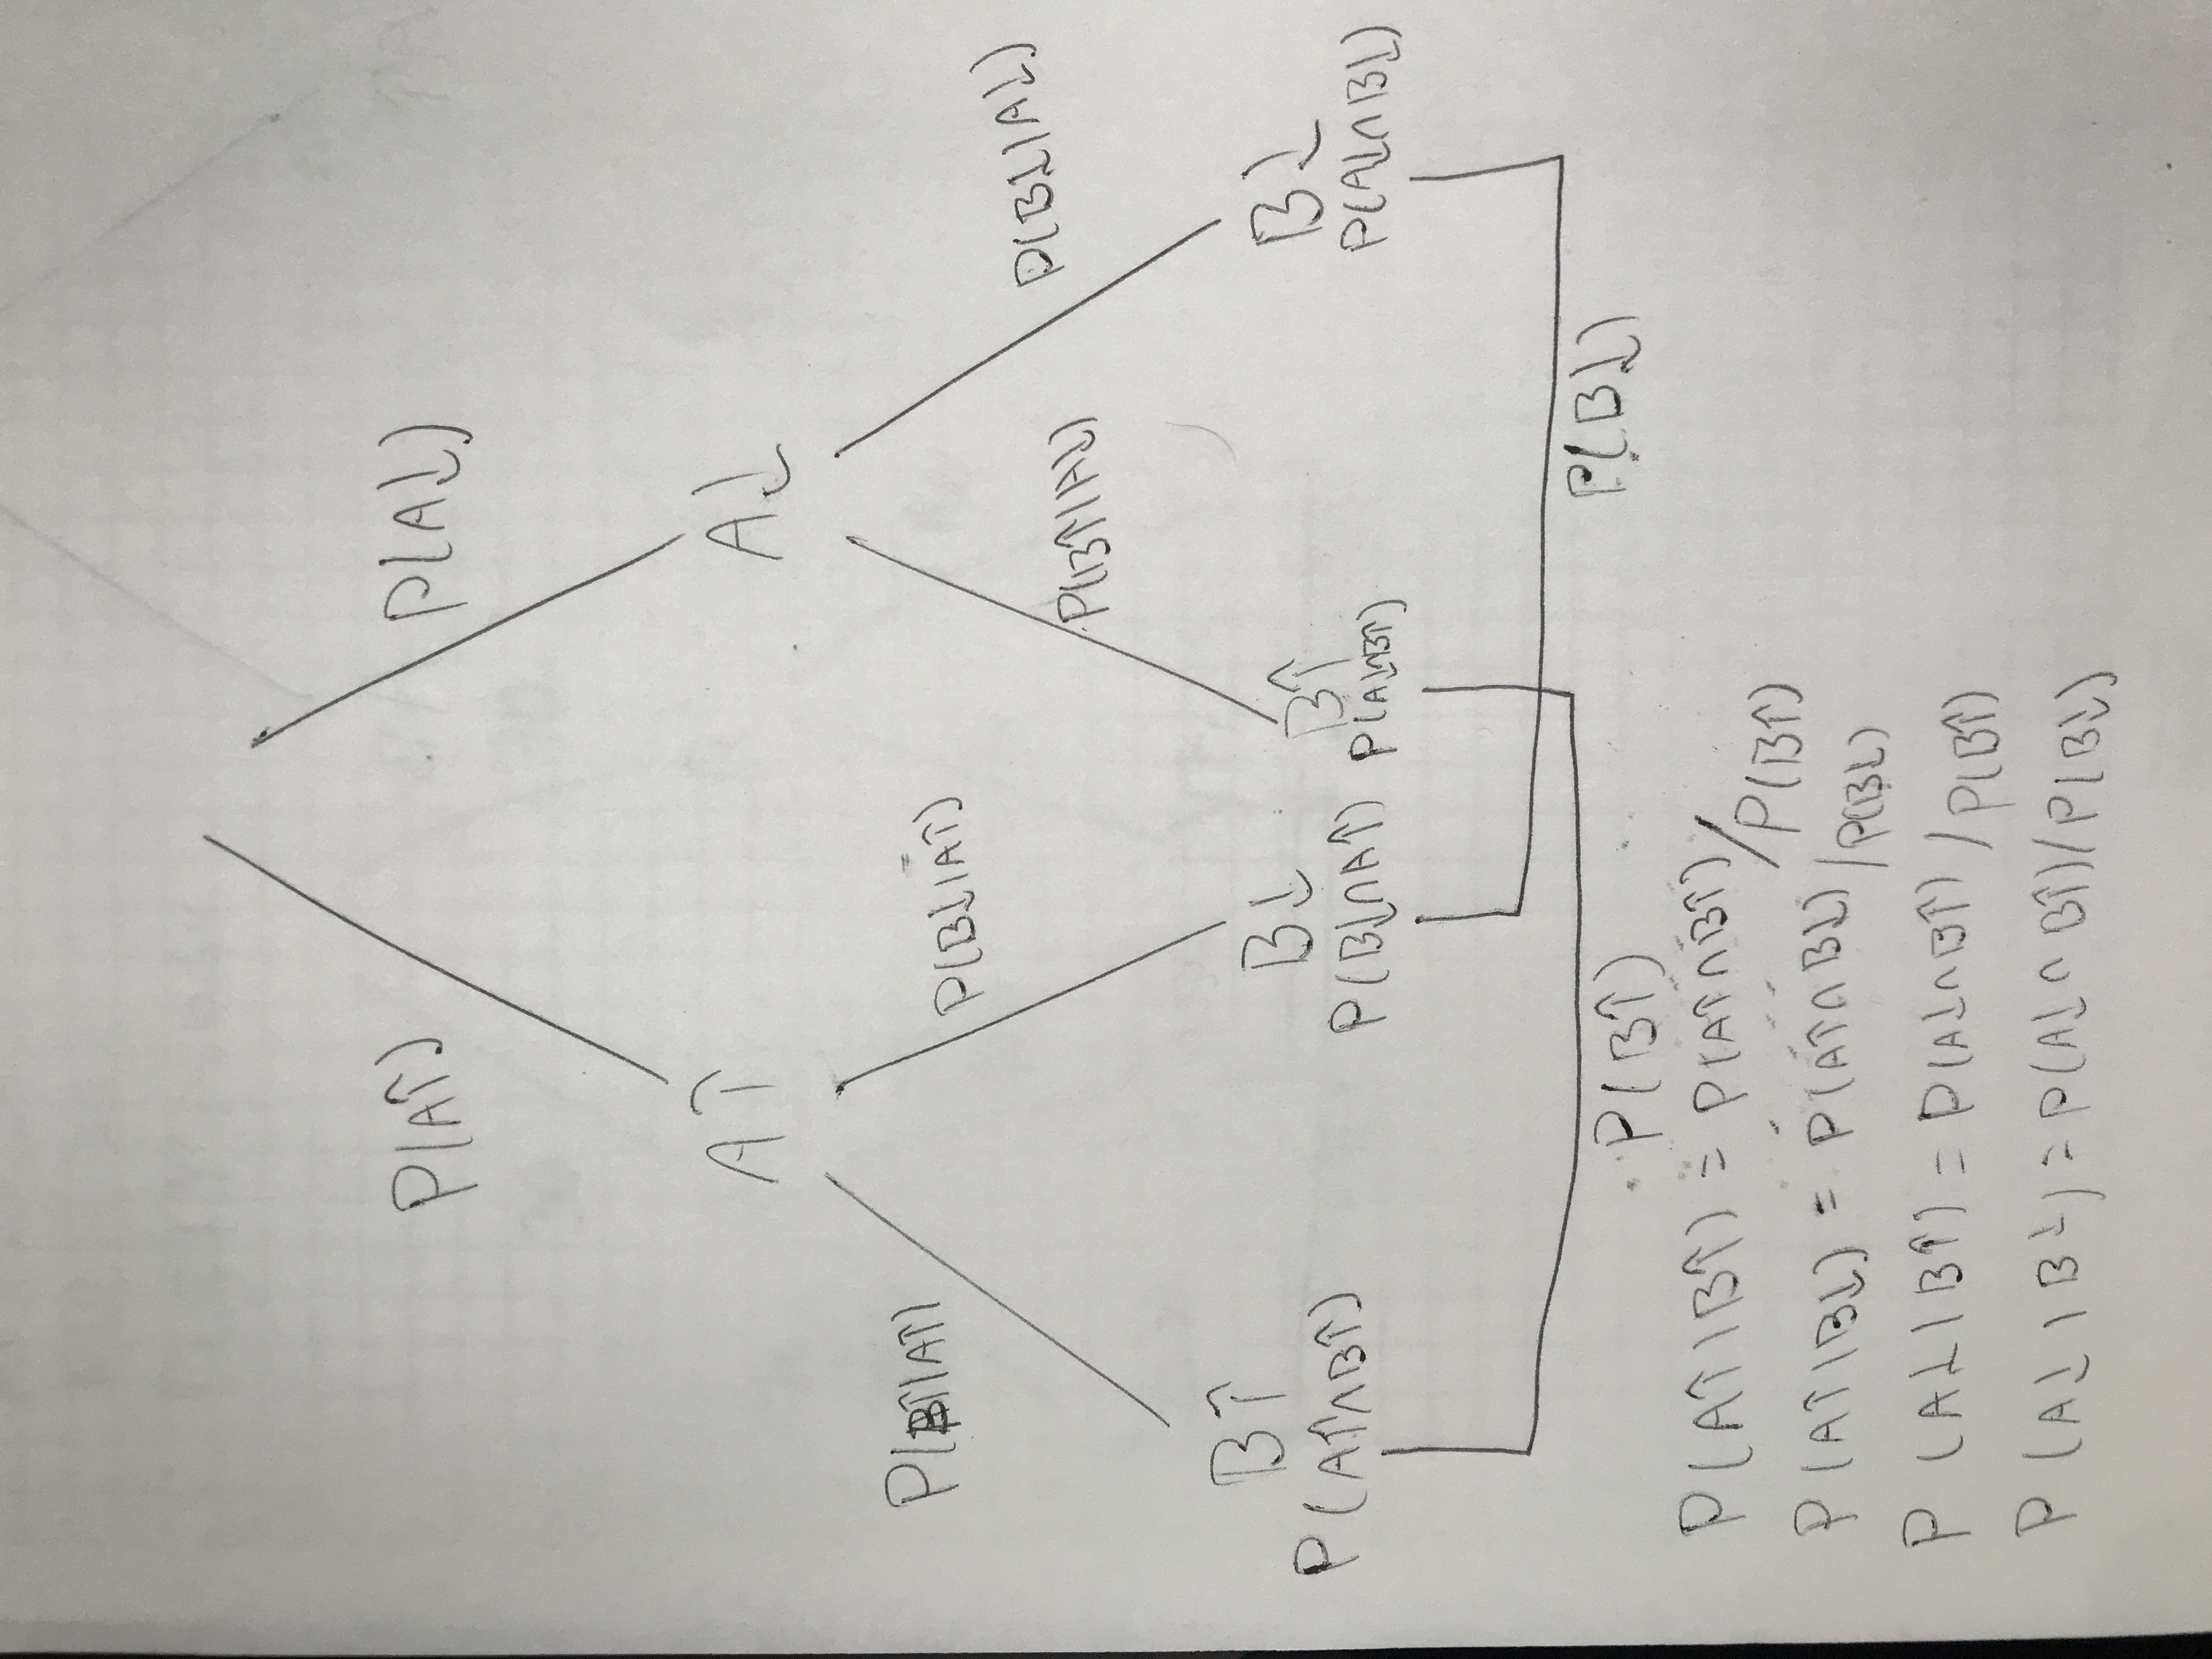 P(A↑) P(A↓)
A↑ A↓
P(B↑|A↑) P(B↓|A↑) P(B↑|A↓) P(B↓|A↓)
B↑ B↓ B↑ B↓
P(A↑∩B↑) P(B↓∩A↑) P(A↓∩B↑) P(A↓∩B↓)
P(B↑) P(B↓)
P(A↑|B↑) = P(A↑∩B↑)/P(B↑)
P(A↑|B↓) = P(A↑∩B↓)/P(B↓)
P(A↓|B↑) = P(A↓∩B↑)/P(B↑)
P(A↓|B↓) = P(A↓∩B↑)/P(B↓)